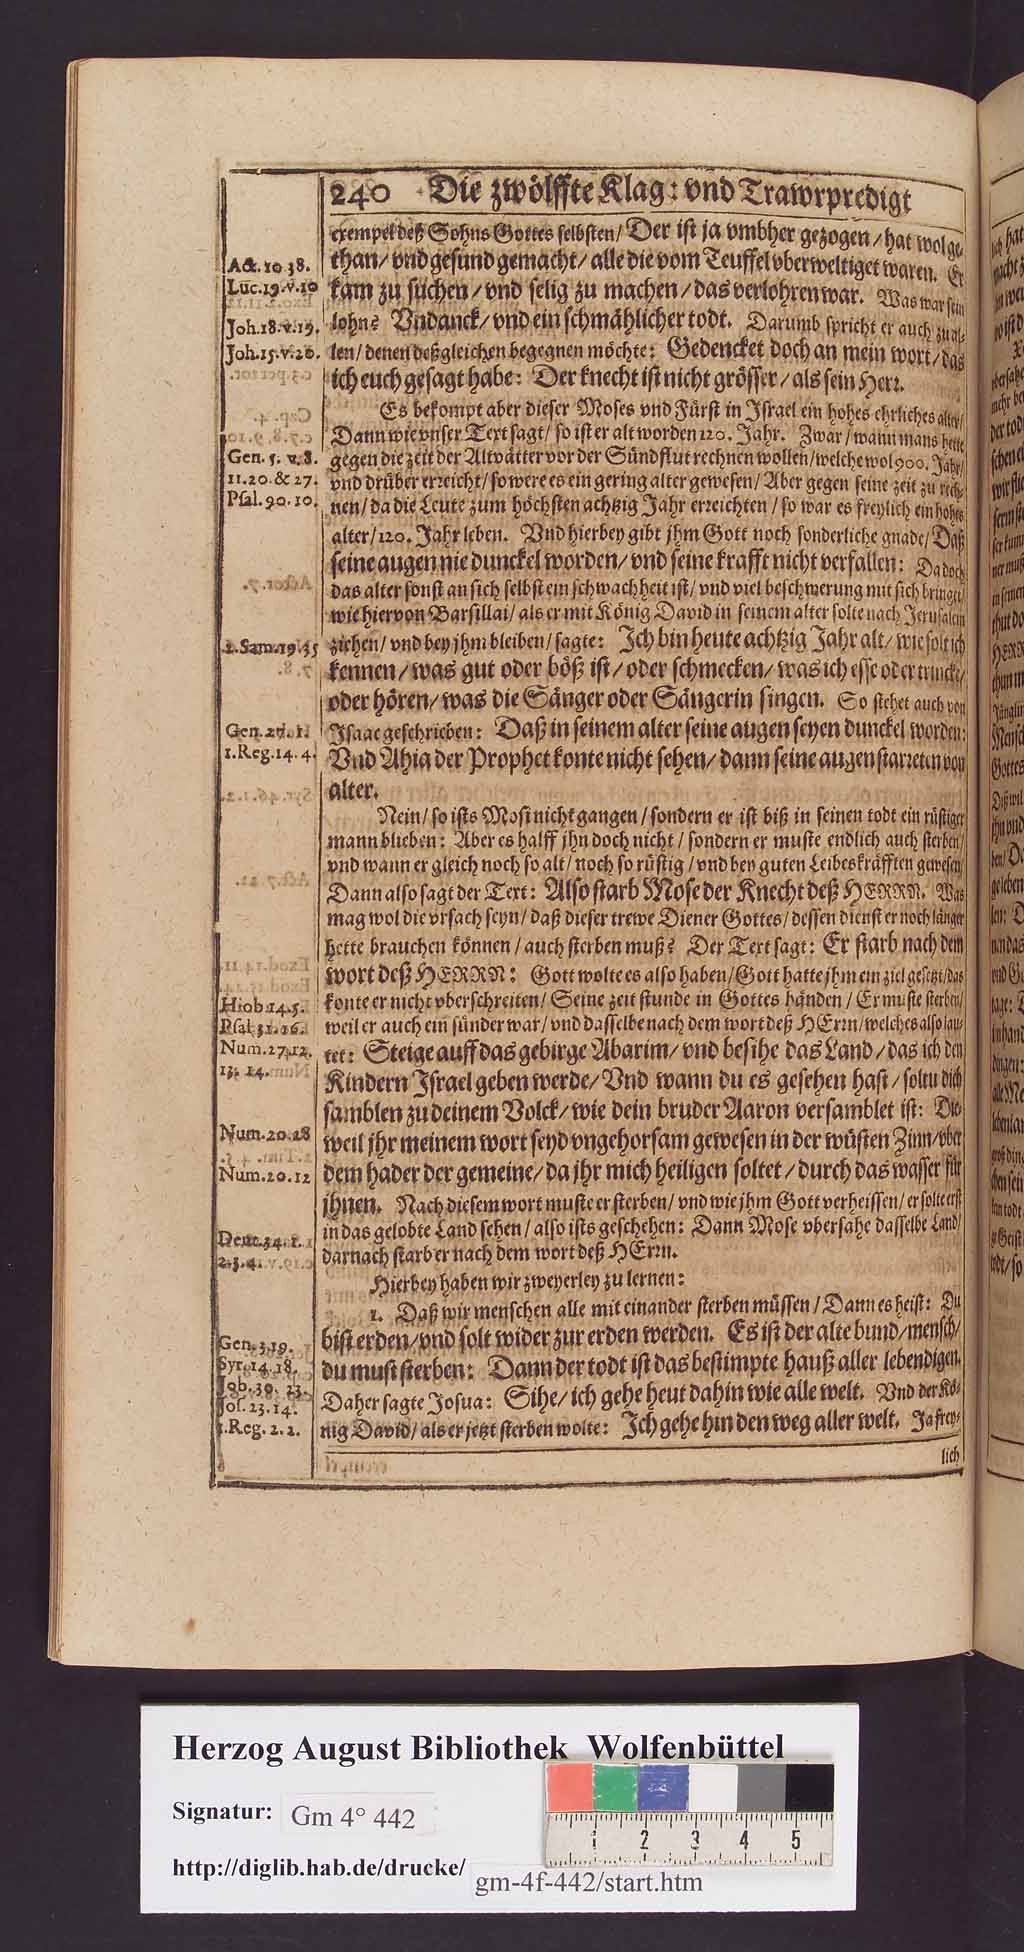 240 Die zwölffte Klag: vnd Trawrpredigt
exempel deß Sohns Gottes selbsten/ Der ist ja vmbher gezogen/ hat wol ge-
than/ vnd gesund gemacht/ alle die vom Teuffel vberweltiget waren. Er
kam zu suchen/ vnd selig zu machen/ das verlohren war. Was war sein
lohn? Vndanck/ vnd ein schmählicher todt. Darumb spricht er auch zu al-
len/ denen deßgleichen begegnen möchte: Gedencket doch an mein wort/ das
ich euch gesagt habe: Der knecht ist nicht grösser/ als sein Herr.
Es bekompt aber dieser Moses vnd Fürst in Israel ein hohes ehrliches alter/
Dann wie vnser Text sagt/ so ist er alt worden 120. Jahr. Zwar/ wann mans hette
gegen die zeit der Altvätter vor der Sündflut rechnen wollen/ welche wol 900. Jahr/
vnd drüber erreicht/ so were es ein gering alter gewesen/ Aber gegen seine zeit zu rech-
nen/ da die Leute zum höchsten achtzig Jahr erreichten/ so war es freylich ein hohes
alter/ 120. Jahr leben. Vnd hierbey gibt jhm Gott noch sonderliche gnade/ Daß
seine augen nie dunckel worden/ vnd seine krafft nicht verfallen: Da doch
das alter sonst an sich selbst ein schwachheit ist/ vnd viel beschwerung mit sich bringet/
wie hiervon Barsillai/ als er mit König David in seinem alter solte nach Jerusalem
ziehen/ vnd bey jhm bleiben/ sagte: Ich bin heute achtzig Jahr alt/ wie solt ich
kennen/ was gut oder böß ist/ oder schmecken/ was ich esse oder trincke/
oder hören/ was die Sänger oder Sängerin singen. So stehet auch von
Isaac geschrieben: Daß in seinem alter seine augen seyen dunckel worden:
Vnd Ahia der Prophet konte nicht sehen/ dann seine augen starreten von
alter.
Nein/ so ists Mosi nicht gangen/ sondern er ist biß in seinen todt ein rüstiger
mann blieben: Aber es halff jhn doch nicht/ sondern er muste endlich auch sterben/
vnd wann er gleich noch so alt/ noch so rüstig/ vnd bey guten Leibeskräfften gewesen/
Dann also sagt der Text: Also starb Mose der Knecht deß HERRN. Was
mag wol die vrsach seyn/ daß dieser trewe Diener Gottes/ dessen dienst er noch länger
hette brauchen können/ auch sterben muß? Der Text sagt: Er starb nach dem
wort deß HERRN: Gott wolte es also haben/ Gott hatte jhm ein ziel gesetzt/ das
konte er nicht vberschreiten/ Seine zeit stunde in Gottes händen/ Er muste sterben/
weil er auch ein sünder war/ vnd dasselbe nach dem wort deß HErrn/ welches also lau-
tet: Steige auff das gebirge Abarim/ vnd besihe das Land/ das ich den
Kindern Israel geben werde/ Vnd wann du es gesehen hast/ soltu dich
samblen zu deinem Volck/ wie dein bruder Aaron versamblet ist: Die-
weil jhr meinem wort seyd vngehorsam gewesen in der wüsten Zinn/ vber
dem hader der gemeine/ da jhr mich heiligen soltet/ durch das wasser für
jhnen. Nach diesem wort muste er sterben/ vnd wie jhm Gott verheissen/ er solte erst
in das gelobte Land sehen/ also ists geschehen: Dann Mose vbersahe dasselbe Land/
darnach starb er nach dem wort deß HErrn.
Hierbey haben wir zweyerley zu lernen:
1. Daß wir menschen alle mit einander sterben müssen/ Dann es heist: Du
bist erden/ vnd solt wider zur erden werden. Es ist der alte bund/ mensch/
du must sterben: Dann der todt ist das bestimpte hauß aller lebendigen.
Daher sagte Josua: Sihe/ ich gehe heut dahin wie alle welt. Vnd der Kö-
nig David/ als er jetzt sterben wolte: Ich gehe hin den weg aller welt. Ja frey-
lich
Act. 10 38.
Luc. 19. v. 10
Joh. 18. v. 19.
Joh. 15. v. 20.
Gen. 5. v. 8.
11. 20. & 27.
Psal. 90. 10.
2. Sam. 19. 35
Gen. 27. 1.
1. Reg. 14. 4.
Hiob. 14. 5.
Psal. 31. 16.
Num. 27. 12.
13. 14.
Num. 20. 28
Num. 20. 12
Deut. 34. 1.
2. 3. 4.
Gen. 3. 19.
Syr. 14. 18.
Job. 30. 23.
Jos. 23. 14.
1. Reg. 2. 2.
Herzog August Bibliothek Wolfenbüttel
Signatur: Gm 4° 442
http://diglib.hab.de/drucke/ gm-4f-442/start.htm
1 2 3 4 5